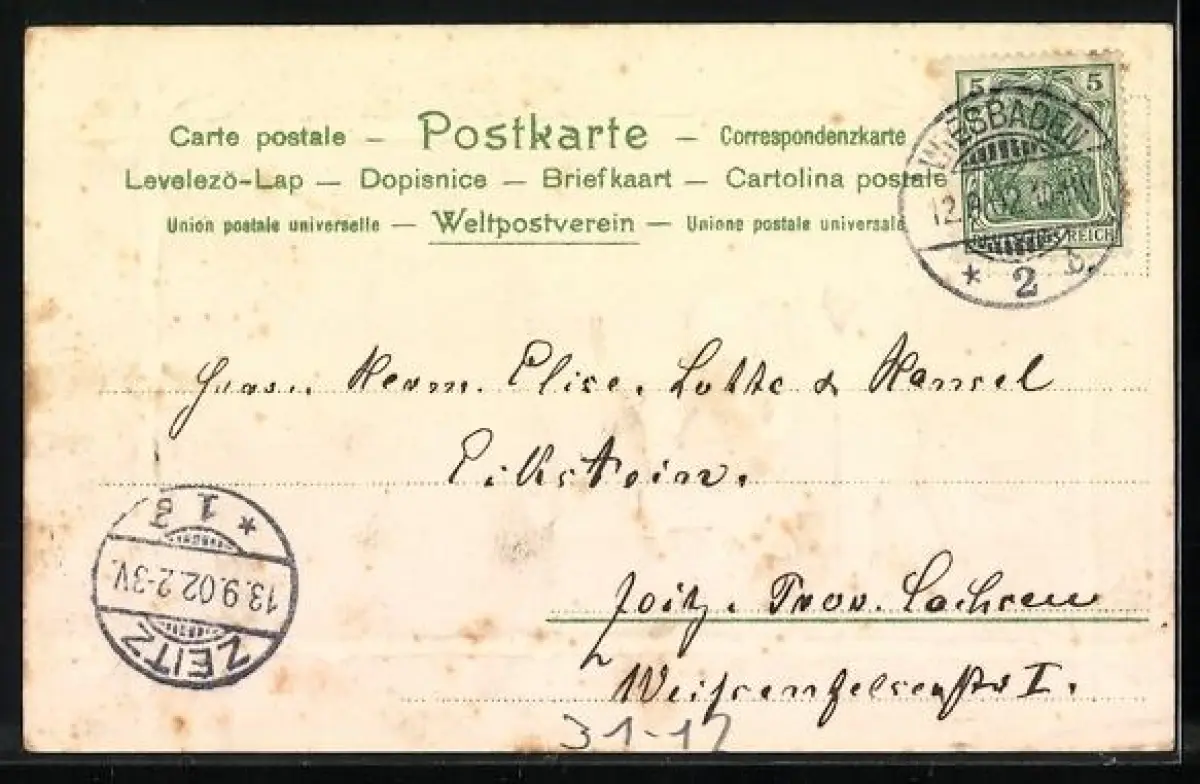 Carte postale – Postkarte – Correspondenzkarte
Levelezö-Lap — Dopisnice — Briefkaart — Cartolina postale
Union postale universelle — Weltpostverein — Unione postale universale
5 5
REICH
WIESBADEN
* 2 b.
Herm. Elise, Lotte & Hansel
Eckstein.
Zeitz. Prov. Sachsen
Weissenfelserstr I.
31-12
* 1 c
13.9.02.2-3V.
ZEITZ